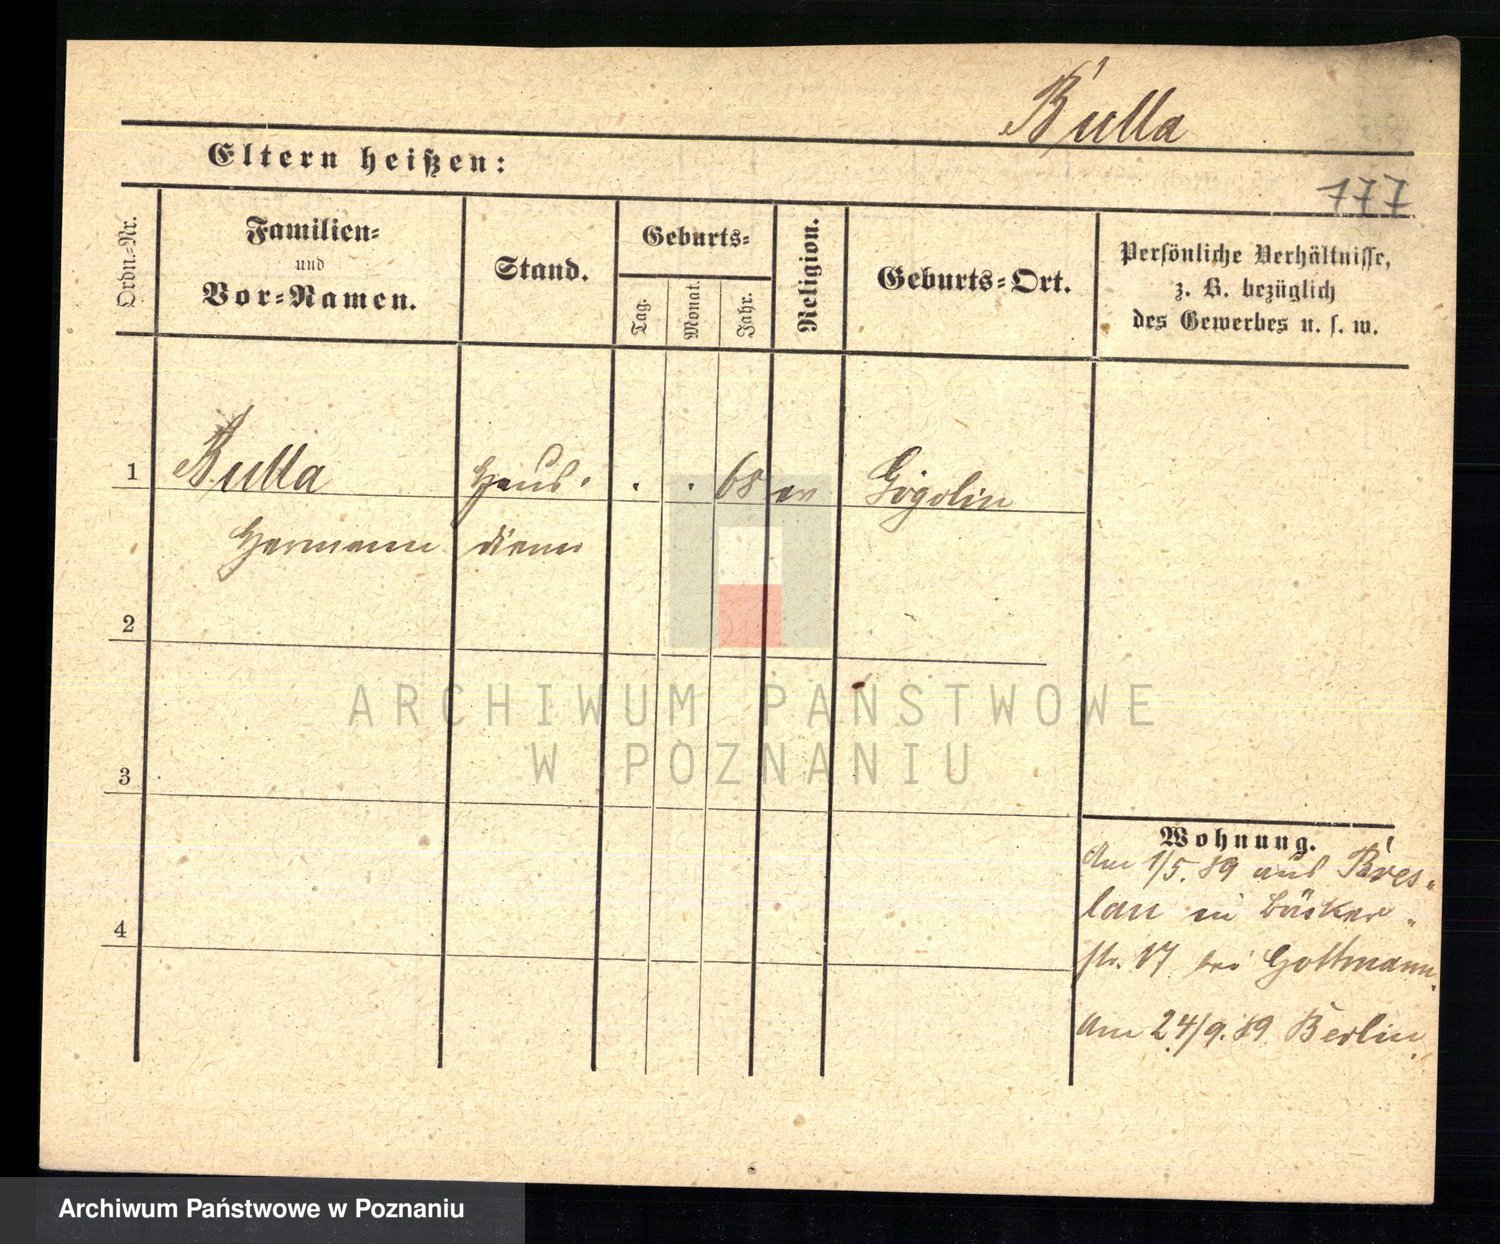 Bulla
Eltern heißen:
177
Ordn.-Nr.
Familien-
und
Vor-Namen.
Stand.
Geburts-
Tag.
Monat.
Jahr.
Religion.
Geburts-Ort.
Persönliche Verhältnisse,
z. B. bezüglich
des Gewerbes u. s. w.
1 Bulla Haus- . . 68 ev Gogolin
Hermann diener
2
ARCHIWUM PAŃSTWOWE
W POZNANIU
3
4
Wohnung.
Am 1/5. 89 aus Bres-
lau in Bäcker-
str. 17 bei Gottmann.
Am 24/9. 89 Berlin.
Archiwum Państwowe w Poznaniu